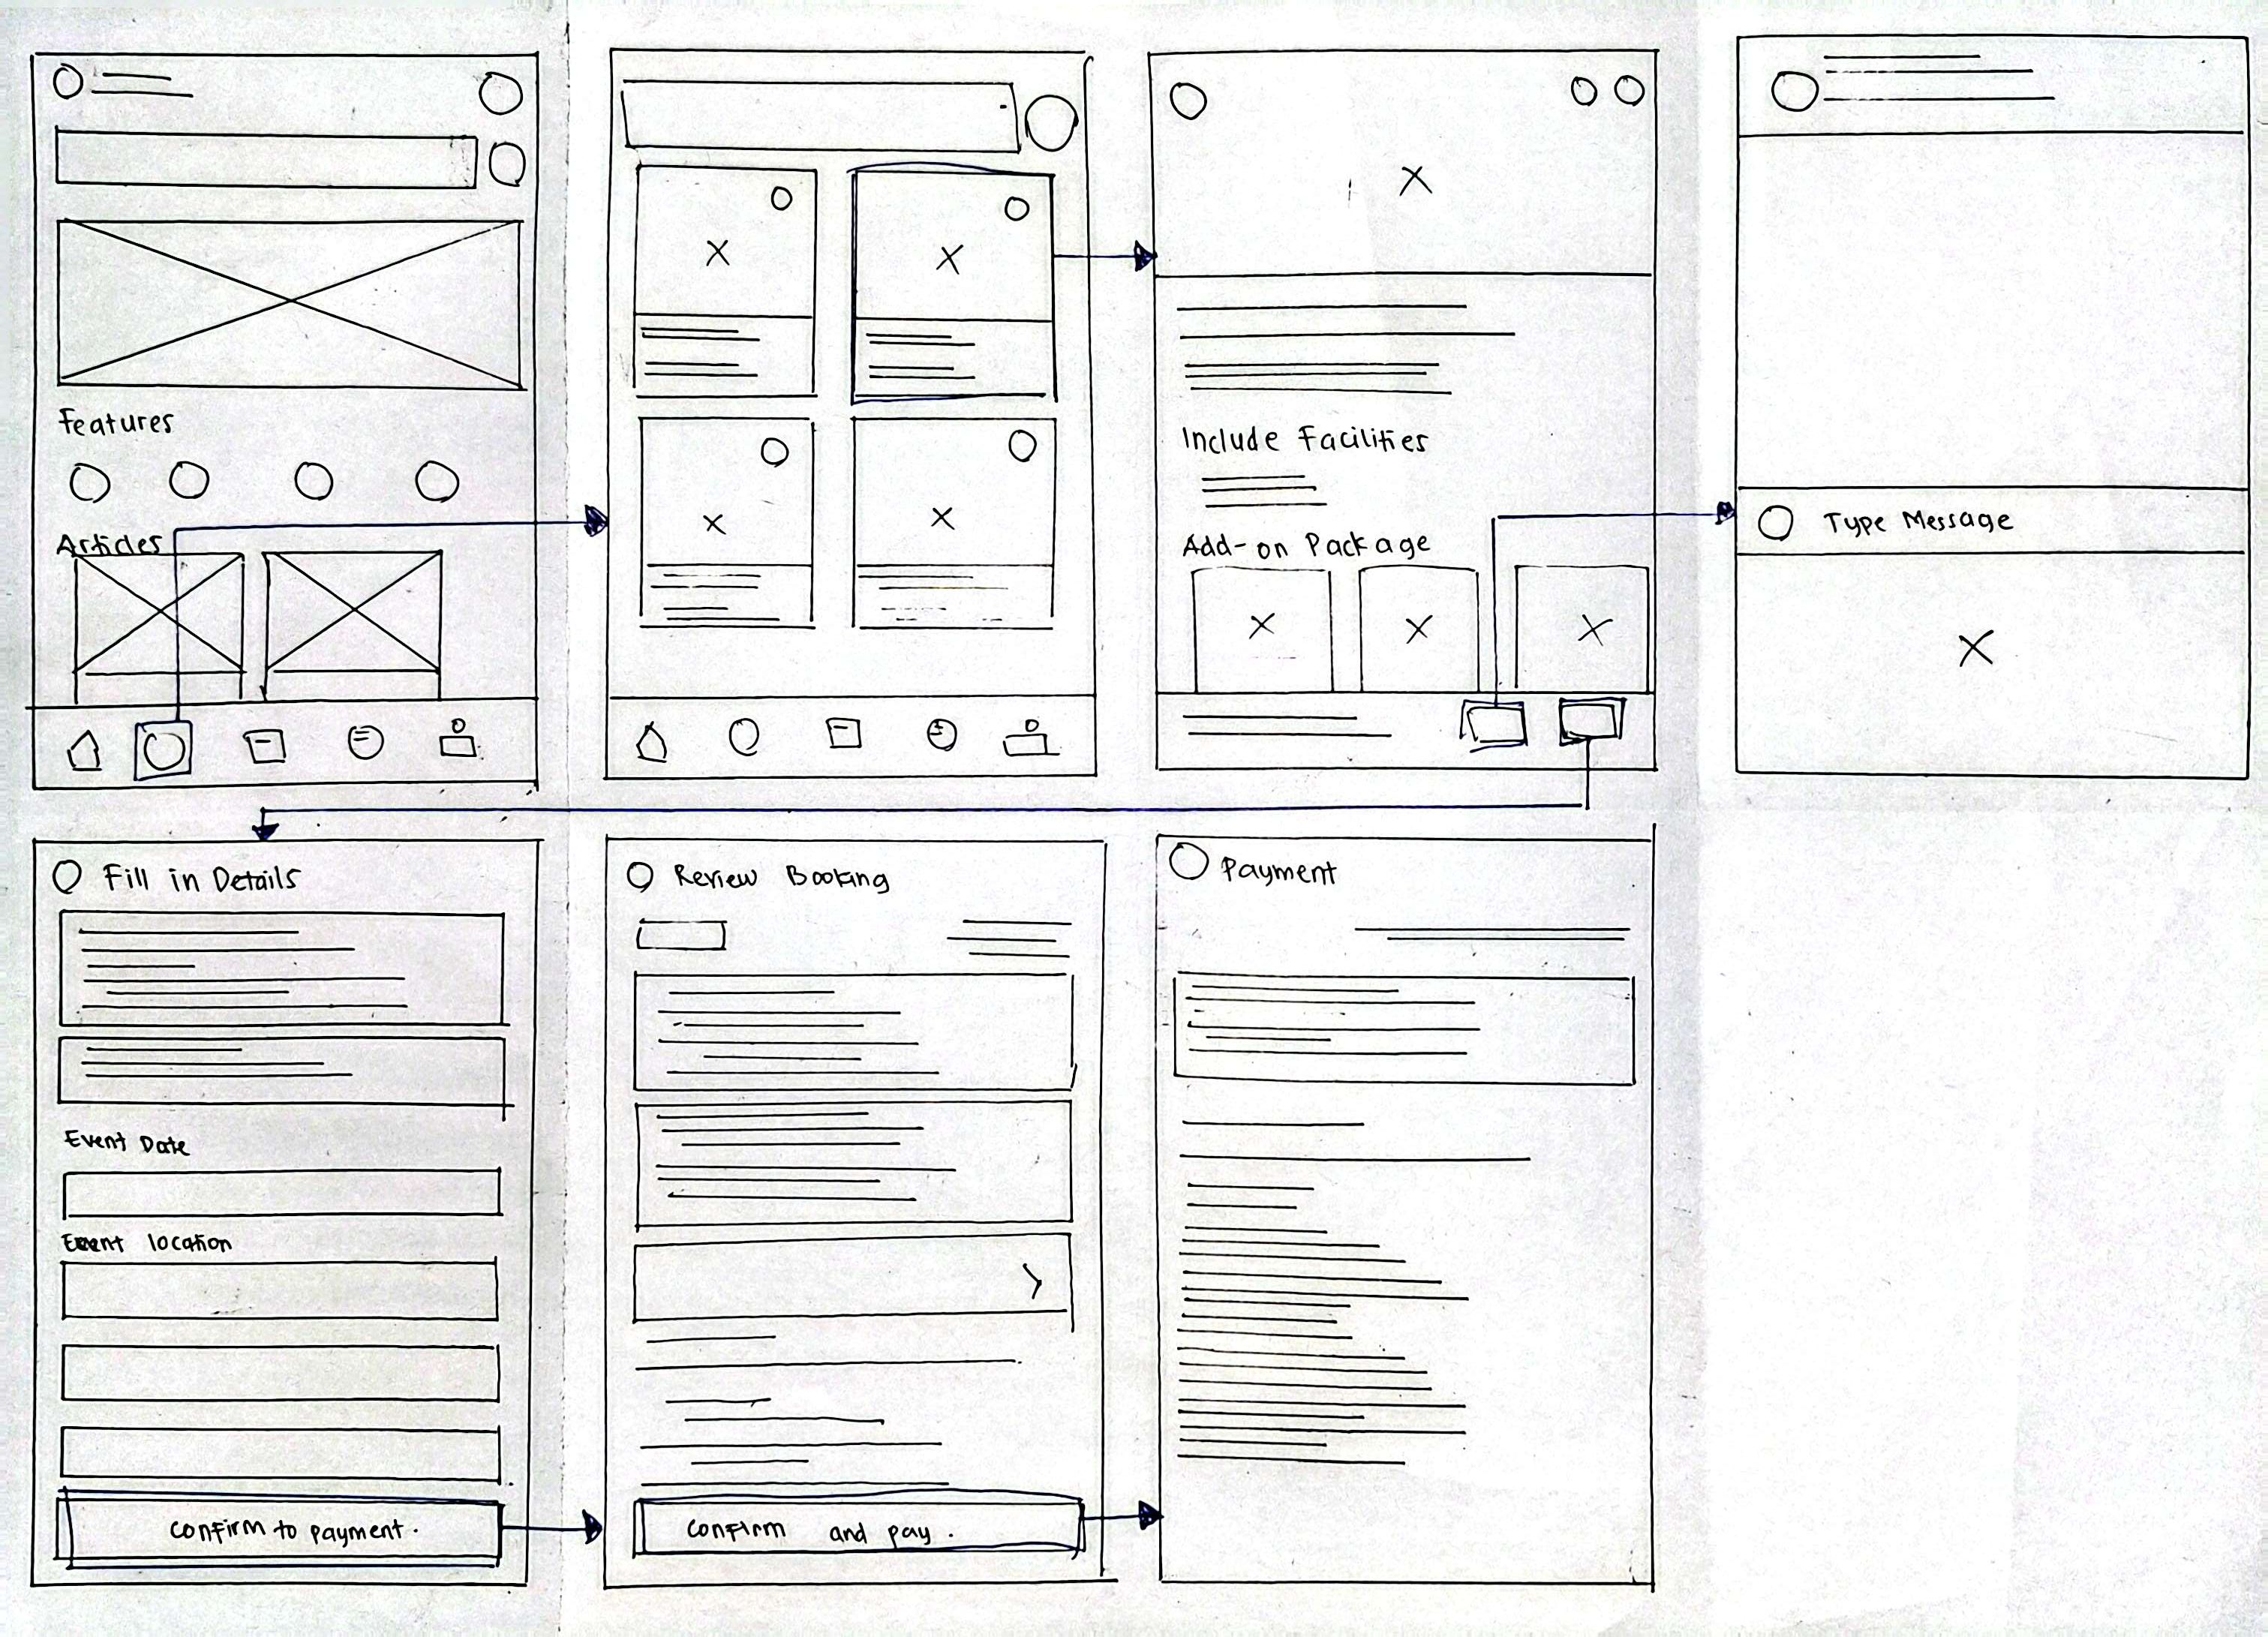 Features
Articles
Include Facilities
Add-on Package
Type Message
Fill in Details
Event Date
Event location
confirm to payment.
Review Booking
confirm and pay.
Payment